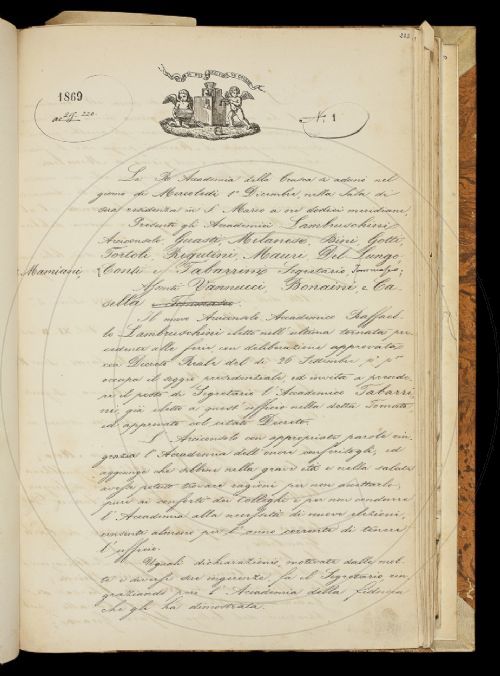 203
1869
ac 219. 220.
N. 1
La R. Accademia della Crusca si adunò nel
giorno di Mercoledì 1º Dicembre, nella Sala di
sua residenza in S. Marco a ore dodici meridiane.
Presenti gli Accademici Lambruschini
Arciconsolo Guasti, Milanesi, Bini, Gotti,
Tortoli Rigutini, Mauri Del Lungo,
Mamiani
Conti e Tabarrini Segretario
Assenti Vannucci, Bonaini, e Ca-
sella
Il nuovo Arciconsolo Accademico Raffael-
lo Lambruschini eletto nell'ultima tornata pre-
cedente alle ferie con deliberazione approvata
con Decreto Reale del dì 26 Settembre p.º p.º
occupa il seggio presidenziale, ed invita a prende-
re il posto di Segretario l'Accademico Tabarri-
ni, già eletto a quest'ufficio nella detta Tornata,
ed approvato col citato Decreto.
L'Arciconsolo con appropriate parole rin-
grazia l'Accademia dell'onore conferitogli, ed
aggiunge che sebbene nella grave età e nella salute
avesse potuto trovare ragioni per non accettarlo,
pure a conforto dei Colleghi e per non condurre
l'Accademia alla necessità di nuove elezioni,
consentì almeno per l'anno corrente di tenere
l'ufficio.
Uguali dichiarazioni, motivate dalle mol-
te e diverse sue ingerenze fa il Segretario rin-
graziando pure l'Accademia della fiducia
che gli ha dimostrata.